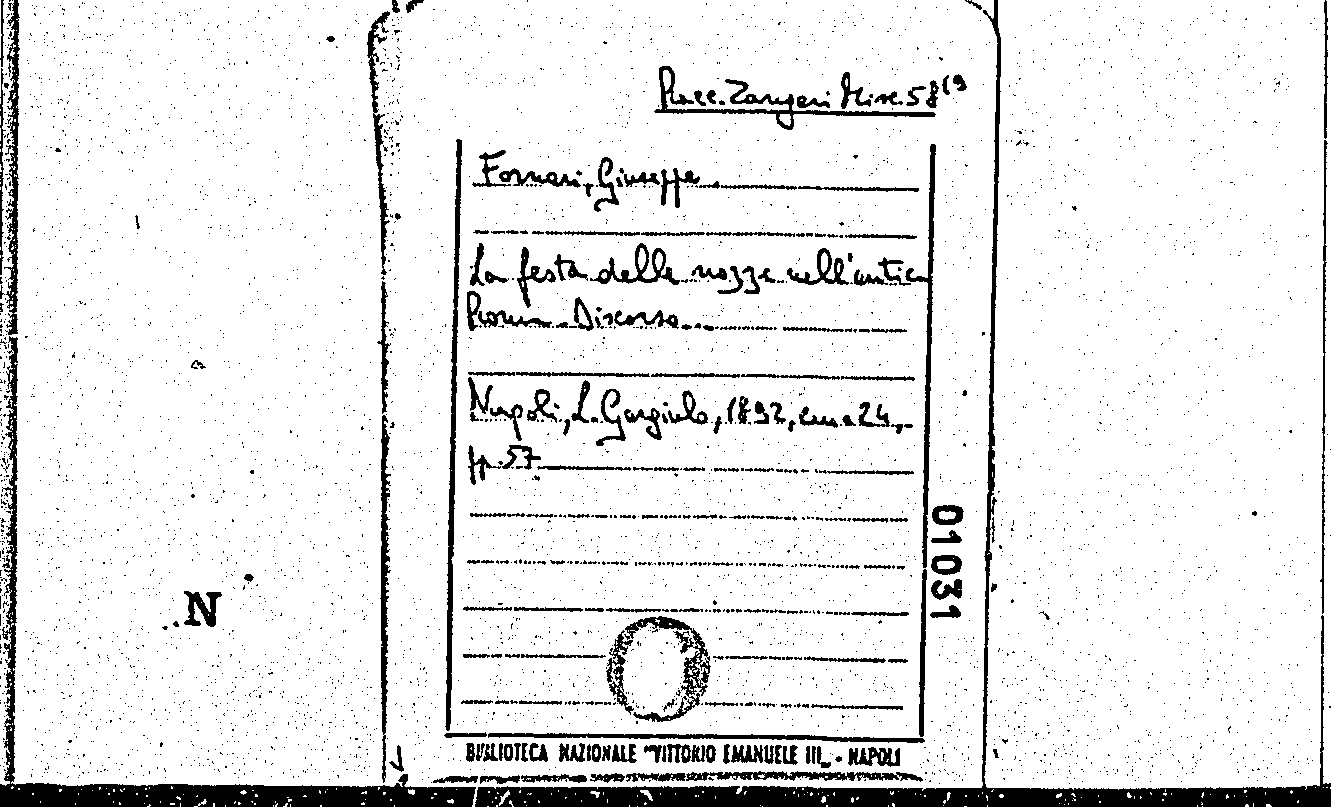 Racc. Zangari Misc. 58(9
Fornari, Giuseppe
La festa delle nozze nell'antica
Roma. Discorso...
Napoli, L. Gargiulo, 1892, cm. 24,
pp. 57.
01031
N
BIBLIOTECA NAZIONALE "VITTORIO EMANUELE III„ - NAPOLI